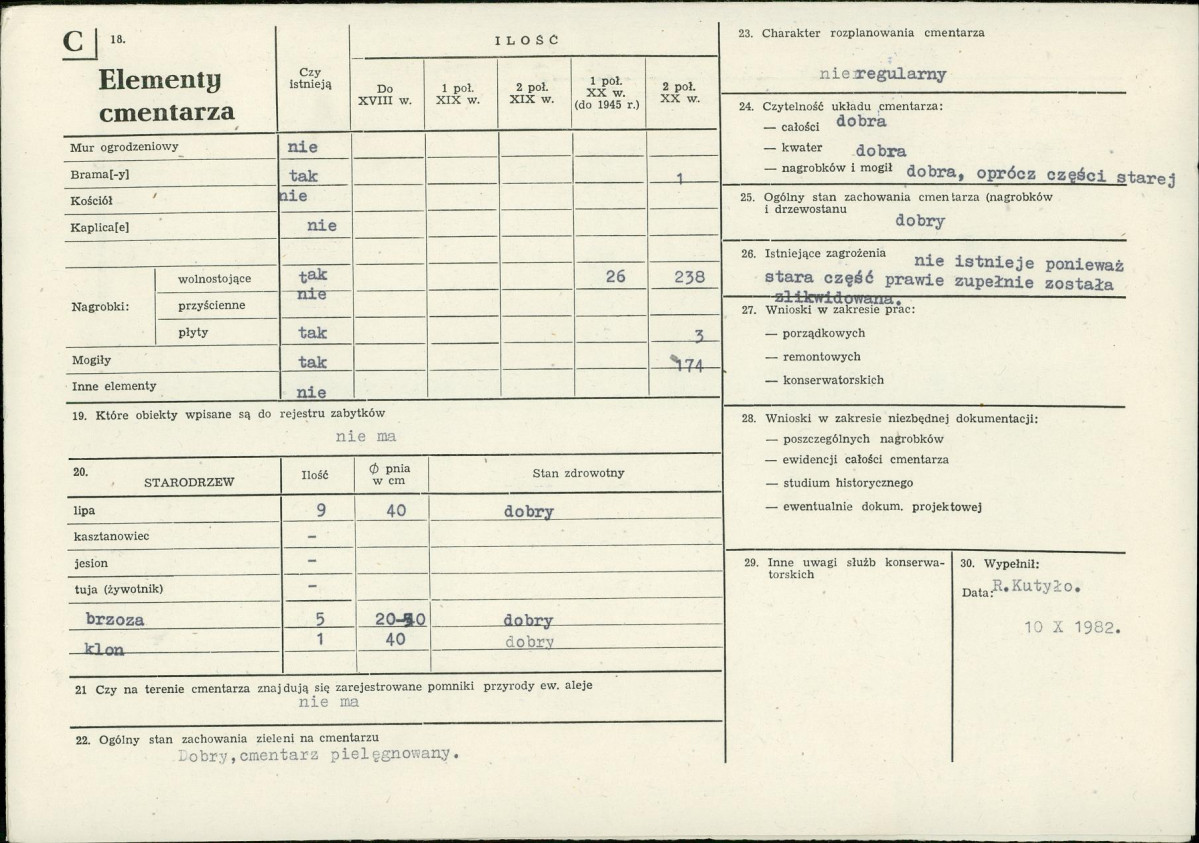 C 18.
Elementy
cmentarza
Czy
istnieją
ILOŚĆ
Do
XVIII w.
1 poł.
XIX w.
2 poł.
XIX w.
1 poł.
XX w.
(do 1945 r.)
2 poł.
XX w.
Mur ogrodzeniowy nie
Brama[-y] tak 1
Kościół nie
Kaplica[e] nie
Nagrobki:
wolnostojące tak 26 238
przyścienne nie
płyty tak 3
Mogiły tak 174
Inne elementy nie
19. Które obiekty wpisane są do rejestru zabytków
nie ma
20.
STARODRZEW
Ilość
Ø pnia
w cm
Stan zdrowotny
lipa 9 40 dobry
kasztanowiec –
jesion –
tuja (żywotnik) –
brzoza 5 dobry
klon 1 40 dobry
21 Czy na terenie cmentarza znajdują się zarejestrowane pomniki przyrody ew. aleje
nie ma
22. Ogólny stan zachowania zieleni na cmentarzu
Dobry,cmentarz pielęgnowany.
23. Charakter rozplanowania cmentarza
nieregularny
24. Czytelność układu cmentarza:
— całości dobra
— kwater dobra
— nagrobków i mogił dobra, oprócz części starej
25. Ogólny stan zachowania cmentarza (nagrobków
i drzewostanu
dobry
26. Istniejące zagrożenia nie istnieje ponieważ
stara część prawie zupełnie została
zlikwidowana.
27. Wnioski w zakresie prac:
— porządkowych
— remontowych
— konserwatorskich
28. Wnioski w zakresie niezbędnej dokumentacji:
— poszczególnych nagrobków
— ewidencji całości cmentarza
— studium historycznego
— ewentualnie dokum. projektowej
29. Inne uwagi służb konserwa-
torskich
30. Wypełnił:
Data: R.Kutyło.
10 X 1982.